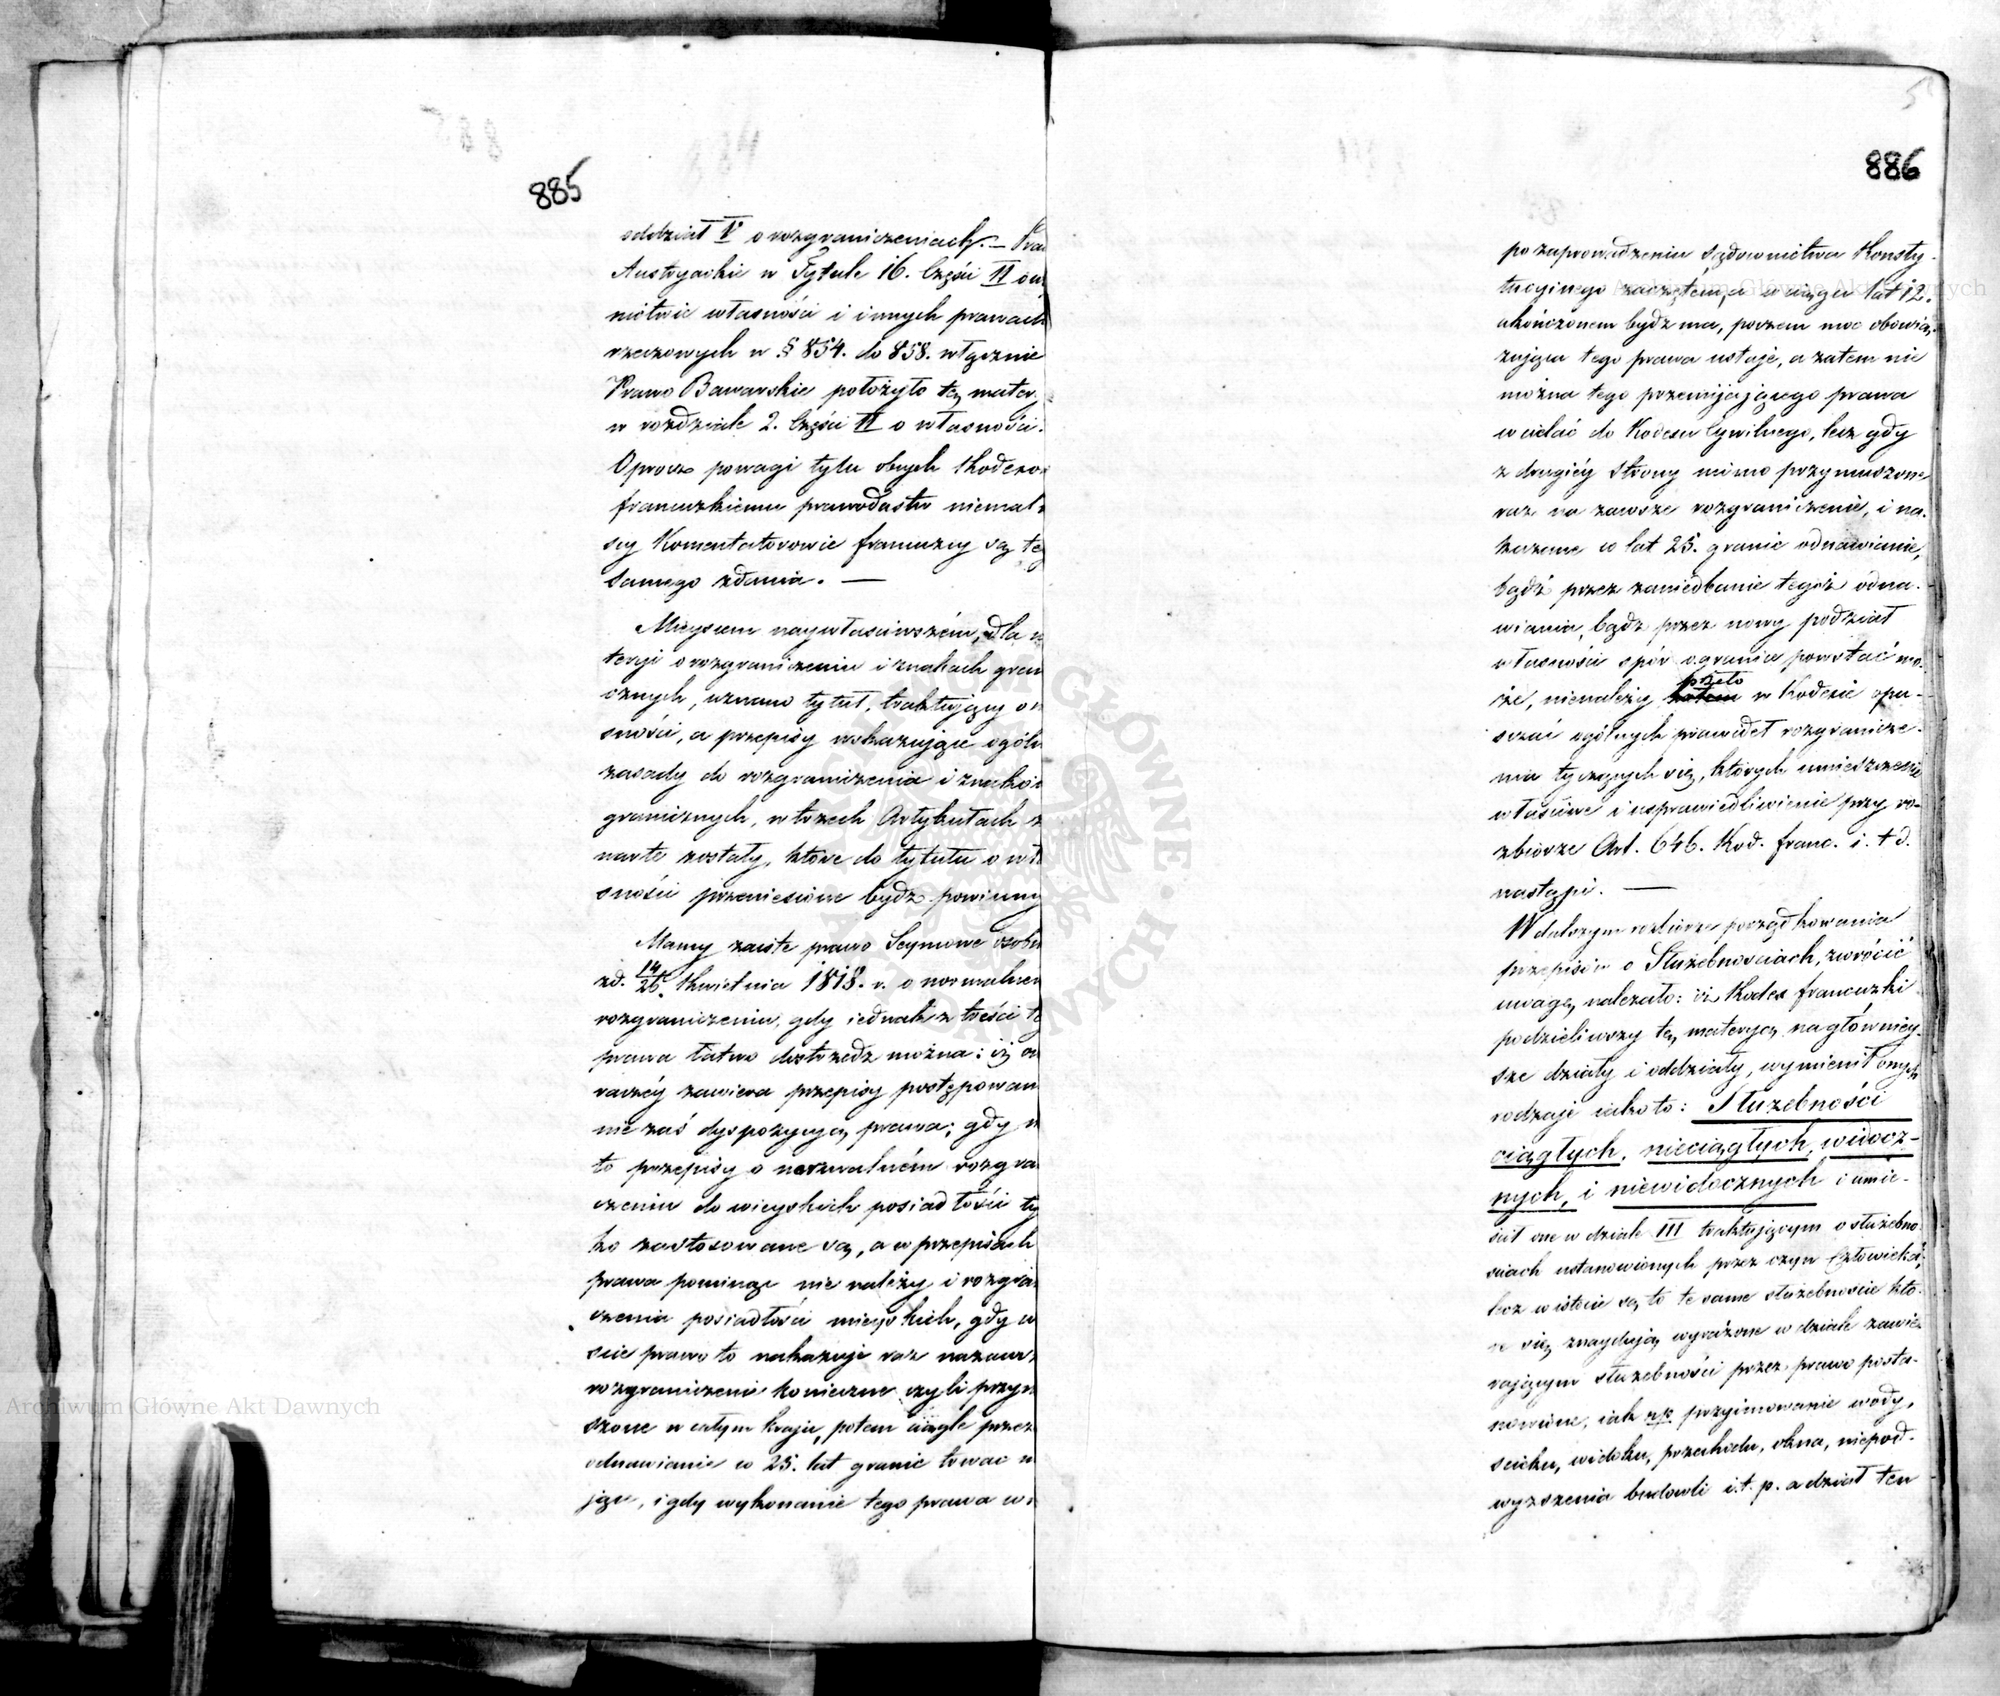 885
oddział V o rozgraniczeniach. — Pra
Austryackie w Tytule 16. Części II o u
nictwie własności i innych prawach
rzeczowych w § 854. do 858. włącznie
Prawo Bawarskie położyło tę mater
w rozdziale 2. Części II o własności.
Oprócz powagi tylu obcych Kodexo
francuzkiemu prawodastw niemal
scy Komentatorowie francuzcy są te
samego zdania. —
Mieyscem naywłaściwszém, dla
teryi o rozgraniczeniu i znakach gran
cznych, uznano tytuł, traktujący o
sności, a przepisy wskazujące ogóln
zasady do rozgraniczenia i znaków
granicznych, w trzech Artykułach z
narte zostały, które do tytułu o wł
sności przeniesione bydz powinny
Mamy zaiste prawo Seymowe osobn
zd. 14/26. Kwietnia 1818. r. o normalnem
rozgraniczeniu, gdy iednak z treści te
prawa łatwo dostrzedz można: iż on
raczéy zawiera przepisy postępowan
nie zaś dyspozycyą prawa; gdy
to przepisy o normalném rozgra
czeniu do wieyskich posiadłości ty
ko zastosowane są, a w przepisach
prawa pominąć nie należy i rozgra
czenia posiadłości mieyskich, gdy w
scie prawo to nakazuje raz nazaw
rozgraniczenie konieczne czyli przym
szone w całym kraju, potem ciągle przez
odnawianie co 25. lat granic trwać
jące, i gdy wykonanie tego prawa w
5
886
po zaprowadzeniu Sądownictwa Konsty-
tucyinego zaczętem, a w ciągu lat 12.
ukończonem bydz ma, poczem moc obowią-
zująca tego prawa ustaje, a zatem nie
można tego przemijającego prawa
wcielać do Kodexu Cywilnego, lecz gdy
z drugiéy strony mimo przymuszone
raz na zawsze rozgraniczenie, i na-
kazane co lat 25. granic odnawianie,
bądź przez zaniedbanie tegoż odna-
wiania, bądz przez nowy podział
własności spór o granice powstać mo-
że, nienależy zatem przeto w Kodexie opu-
szczać ogólnych prawideł rozgranicze-
nia tyczących się, których umieszczenie
właściwe i usprawiedliwienie przy ro-
zbiorze Art. 646. Kod. franc. i. t d.
nastąpi. —
W dalszym rozbiorze porządkowania
przepisów o Służebnosciach, zwrócić
uwagę należało: iż Kodex francuzki
podzieliwszy tę materyę na główniey-
sze działy i oddziały, wymienił onych
rodzaje iako to: Służebności
ciągłych, nieciągłych, widocz-
nych, i niewidocznych i umie-
ścił one w dziale III traktującym o służebno-
sciach ustanowionych przez czyn Człowieka;
lecz w istocie są to te same służebnoscie któ-
re się znaydują wyrażone w dziale zawie-
rającym służebności przez prawo posta-
nowione, iak np. przyimowanie wody,
ścieku, widoku, przechodu, okna, niepod-
wyższenia budowli i. t. p. a dział ten
Archiwum Główne Akt Dawnych
Archiwum Główne Akt Dawnych